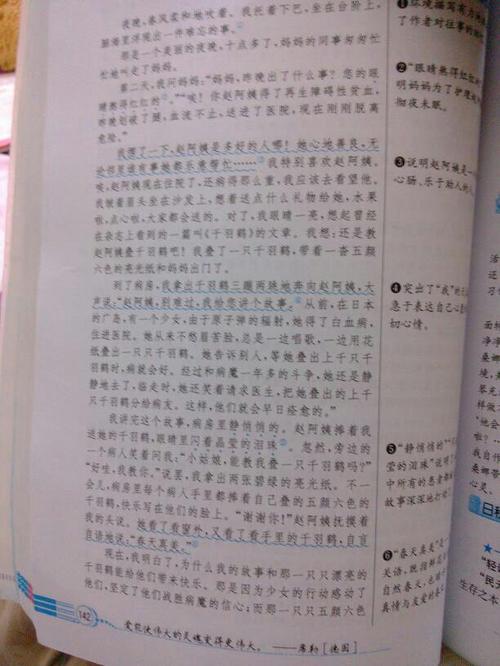 夜晚,春风柔和地吹着。我托着下巴,坐在台阶上,
脑海里浮现出一件难忘的事。
那是一个美丽的夜晚,十点多了,妈妈的同事匆匆忙
忙地叫走了妈妈。
第二天,我问妈妈:“妈妈,昨晚出了什么事?您的眼
睛熬得红红的②。”“唉!你赵阿姨得了再生障碍性贫血,
昨晚划破了腿,血流不止,送进了医院,现在刚刚脱离
危险。”
我愣了一下,赵阿姨是多好的人哪!她心地善良,无
论邻里谁有事她都乐意帮忙……③我特别喜欢赵阿姨。
唉,赵阿姨现在住院了,还病得那么重,我应该去看望他。
我皱着眉头坐在沙发上,想着送点什么礼物给她,水果
啦,点心啦,大家都会送的。对了,我眼睛一亮,想起曾经
在杂志上看到的一篇叫《千羽鹤》的文章。我想:还是教
赵阿姨叠千羽鹤吧!我叠了一只千羽鹤,带着一沓五颜
六色的亮光纸和妈妈出门了。
到了病房,我拿出千羽鹤三蹦两跳地奔向赵阿姨,大
声说:“赵阿姨,别难过,我给您讲个故事。④从前,在日本
的广岛,有一个少女,由于原子弹的辐射,她得了白血病,
住进医院。她从来不愁眉苦脸,总是一边唱歌,一边用花
纸叠出一只只千羽鹤。她告诉别人,等她叠出上千只千
羽鹤时,病就会好。经过和病魔一年多的斗争,她还是静
静地去了,临走时,她还笑着请求医生,把她叠出的上千
只千羽鹤分给病友。这样,他们就会早日痊愈的。”
我讲完这个故事,病房里静悄悄的。赵阿姨捧着我
送她的千羽鹤,眼睛里闪着晶莹的泪珠⑤。忽然,旁边的
一个病人笑着问我:“小姑娘,能教我叠一只千羽鹤吗?”
“好哇,我教你。”说罢,我拿出两张碧绿的亮光纸。不一
会儿,病房里每个病人手里都捧着自己叠的五颜六色的
千羽鹤,快乐写在他们的脸上。“谢谢你!”赵阿姨抚摸着
我的头说。她看了看窗外,又看了看手里的千羽鹤,自言
自语地说:“春天真美。”⑥
现在,我明白了,为什么我的故事和那一只只漂亮的
千羽鹤能给他们带来快乐。那是因为少女的行动感动了
他们,坚定了他们战胜病魔的信心;而那一只只五颜六色
142
爱能使伟大的灵魂变得更伟大。——席勒[德国]
①环境描写有
了作者对往事的
②“眼睛熬得红红的
明妈妈为了护理
彻夜未眠。
③说明赵阿姨是一
心肠、乐于助人的人
④突出了“我”的
急于表达自己心
切心情。
⑤“静悄悄的”
莹的泪珠”说明了
中所有的患者都
故事深深地打动
⑥“春天真美”是一
关语,既指
自然春天,也
真情与友爱的春